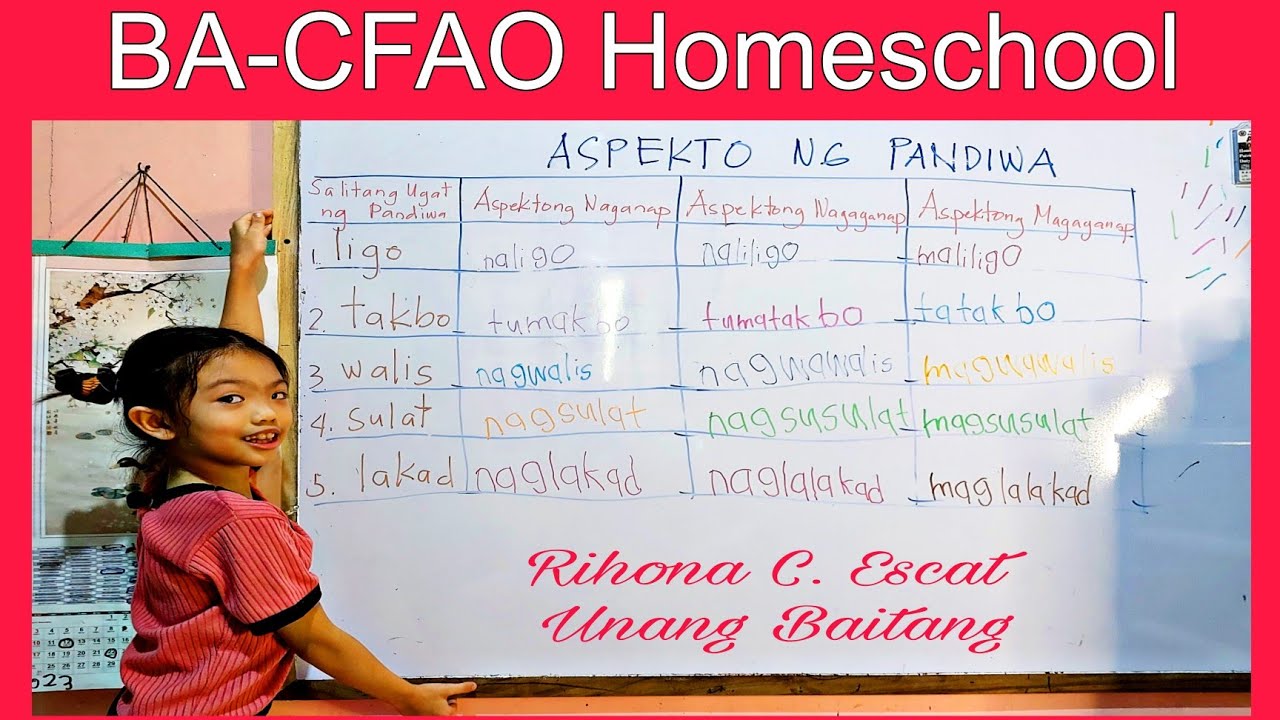 BA-CFAO Homeschool
ASPEKTO NG PANDIWA
Salitang Ugat ng Pandiwa Aspektong Naganap Aspektong Nagaganap Aspektong Magaganap
1. ligo naligo naliligo maliligo
2. takbo tumakbo tumatakbo tatakbo
3. walis nagwalis nagwawalis magwawalis
4. sulat nagsulat nagsusulat magsusulat
5. lakad naglakad naglalakad maglalakad
Rihona C. Escat
Unang Baitang